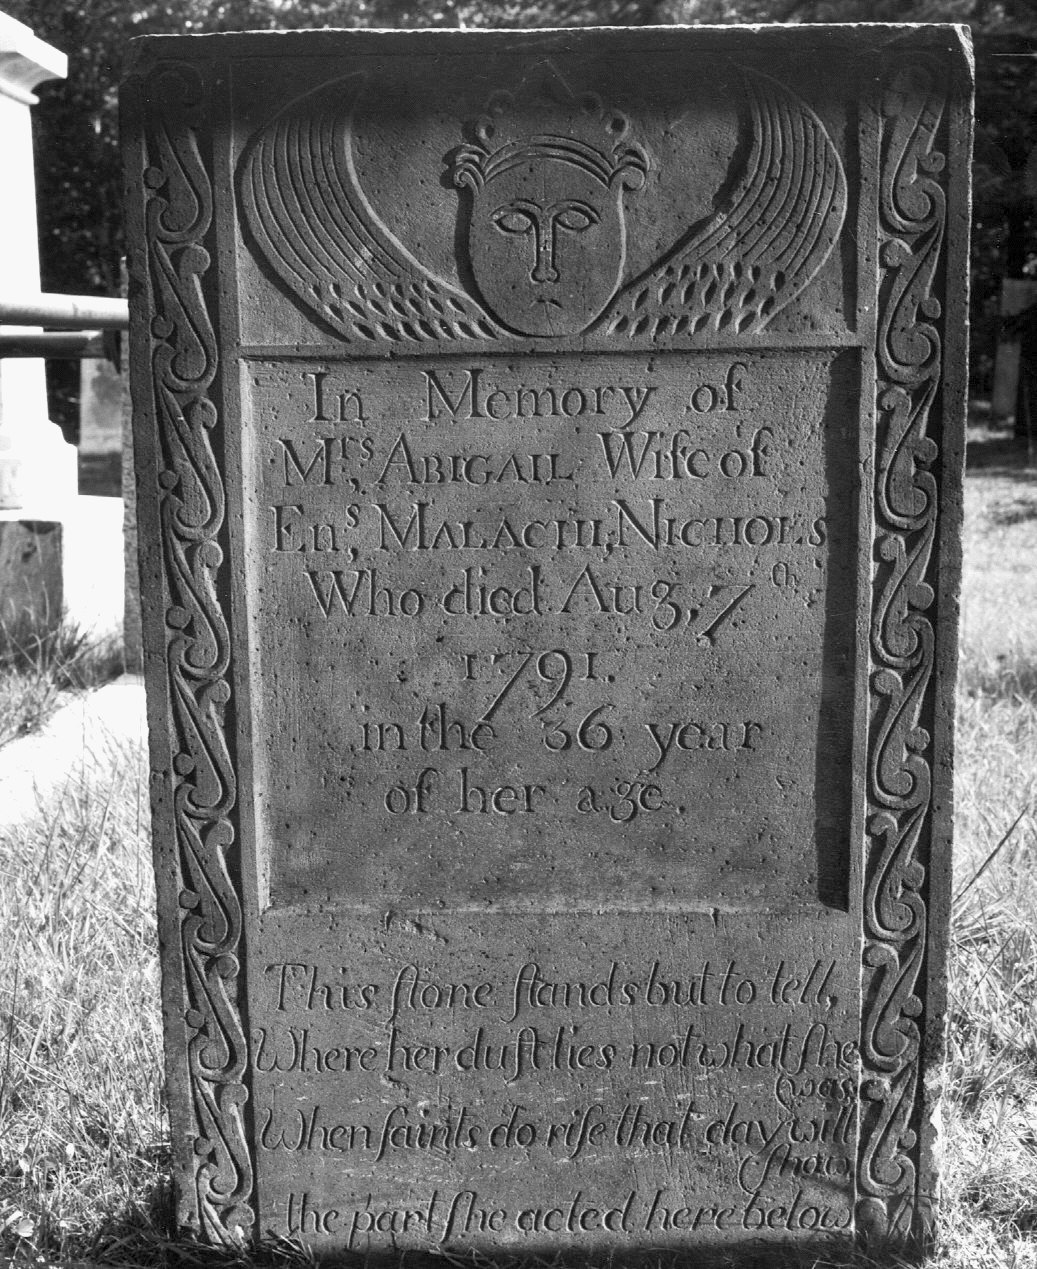 In Memory of
Mrs, ABIGAIL Wife of
Ens, MALACHI, NICHOLS
Who died Aug, 7th,
1791.
in the 36 year
of her age.
This ſtone ſtands but to tell,
Where her duſt lies not what ſhe
was.
When ſaints do riſe that day will
ſhow
the part ſhe acted here below